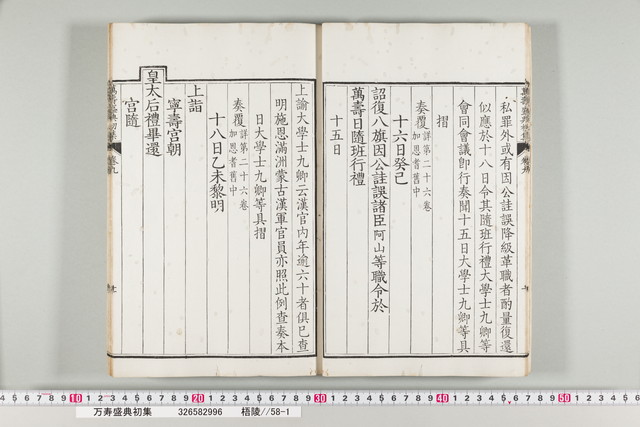 私罪外或有因公詿誤降級革職者酌量復還
似應於十八日令其隨班行禮大學士九卿等
會同會議即行奏聞十五日大學士九卿等具
摺
奏覆詳第二十六卷
加恩耆舊中
十六日癸巳
詔復八旗因公詿誤諸臣阿山等職令於
萬壽日隨班行禮
十五日
上諭大學士九卿云漢官内年逾六十者俱已查
明施恩滿洲蒙古漢軍官員亦照此例查奏本
日大學士九卿等具摺
奏覆詳第二十六卷
加恩耆舊中
十八日乙未黎明
上詣
寧壽宮朝
皇太后禮畢還
宮隨
萬壽盛典初集 卷九
万寿盛典初集 326582996 梧陵//58-1
10 20 30 40 50